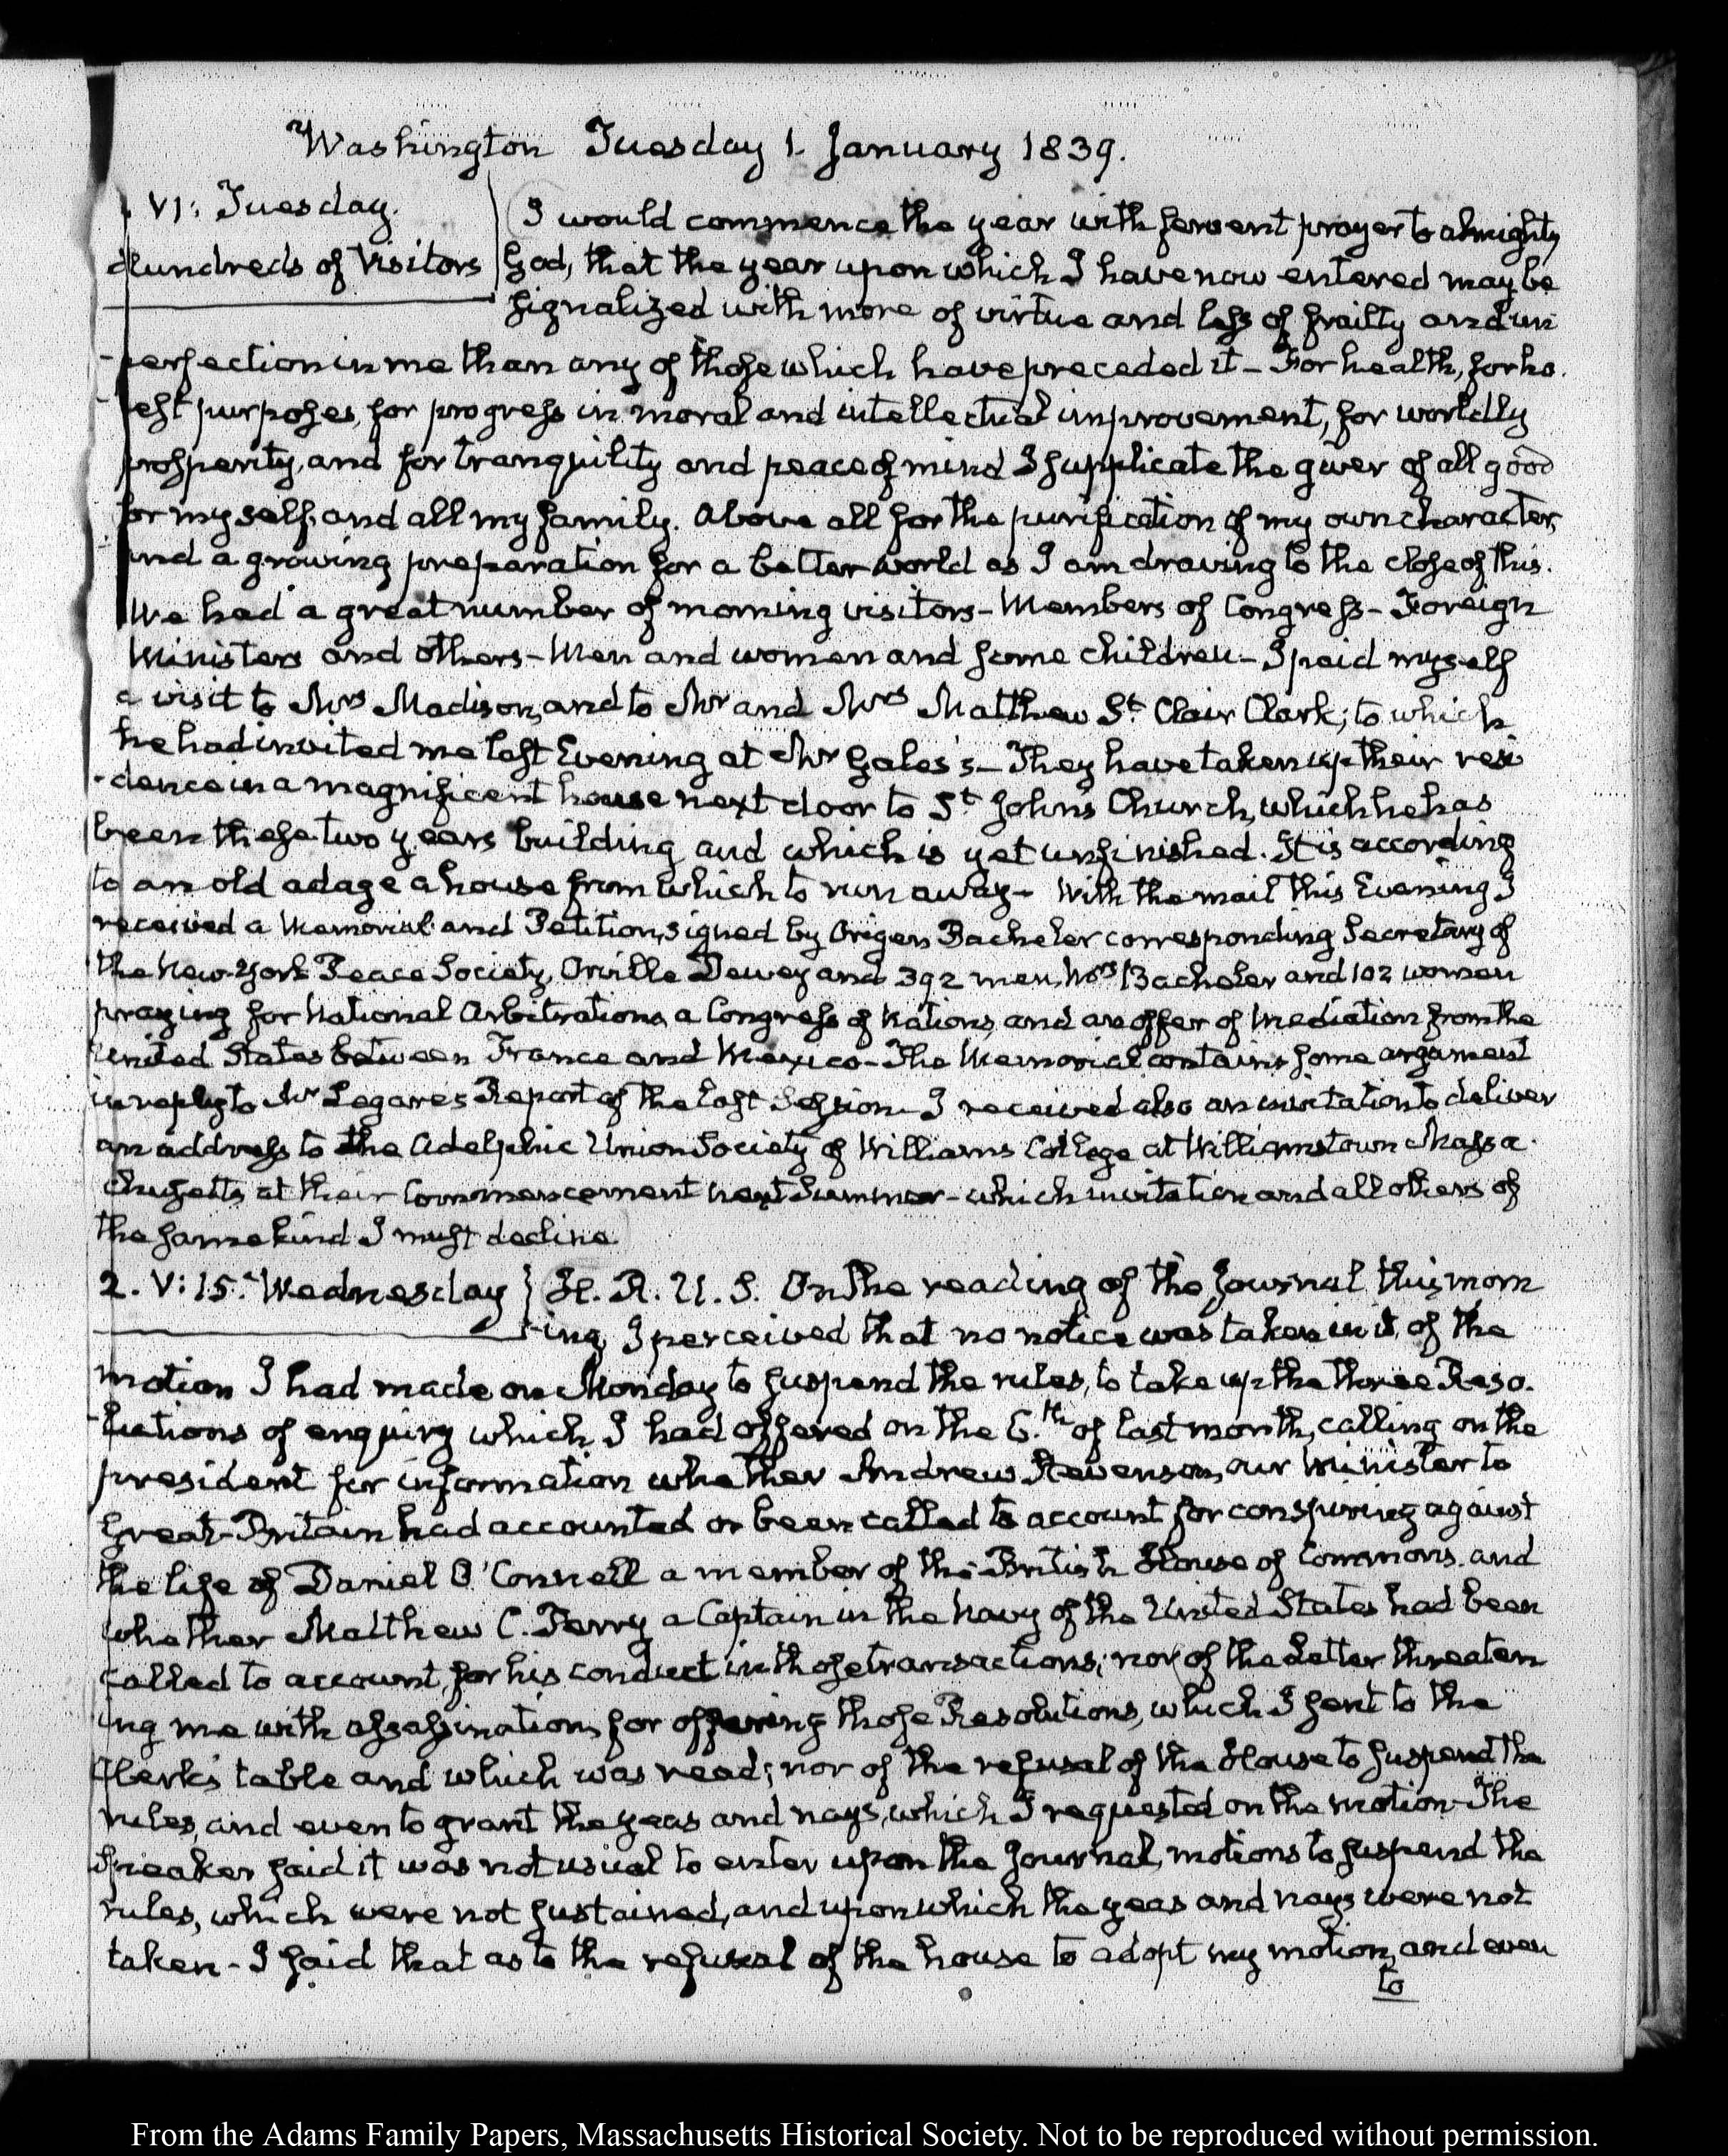 Washington Tuesday 1. January 1839.
VI: Tuesday.
Hundreds of Visitors
I would commence the year with fervent prayer to almighty
God, that the year upon which I have now entered may be
signalized with more of virtue and less of frailty and im
-perfection in me than any of those which have preceded it - For health, for ho.
-nest purposes, for progress in moral and intellectual improvement, for worldly
prosperity, and for tranquility and peace of mind I supplicate the giver of all good
for myself, and all my family. Above all for the purification of my own character,
and a growing preparation for a better world as I am drawing to the close of this.
We had a great number of morning visitors - Members of Congress - Foreign
Ministers and others - Men and women and some children - I paid myself
a visit to Mrs Madison, and to Mr and Mrs Matthew St. Clair Clark; to which
he had invited me last Evening at Mr Gales's - They have taken up their resi
-dence in a magnificent house next door to St. John's Church, which he has
been these two years building and which is yet unfinished. It is according
to an old adage a house from which to run away - With the mail this Evening I
received a Memorial and Petition, signed by Origen Bacheler corresponding Secretary of
the New-York Peace Society, Orville Dewey and 392 men, Mrs Bacheler and 102 women
praying for National Arbitration, a Congress of Nations, and an offer of Mediation from the
United States between France and Mexico - The Memorial contains some argument
in reply to Mr Legare's Report of the last Session. I received also an invitation to deliver
an address to the Adelphic Union Society of Williams College at Williamstown Massa
chusetts at their Commencement next Summer - which invitation and all others of
the same kind I must decline.
2. V: 15. Wednesday
H. R. U. S. On the reading of the Journal this morn
-ing, I perceived that no notice was taken in it, of the
motion I had made on Monday to suspend the rules, to take up the three Reso.
-lutions of enquiry which I had offered on the 6.th of last month, calling on the
president for information whether Andrew Stevenson, our Minister to
Great-Britain had accounted or been called to account for conspiring against
the life of Daniel O'Connell a member of the British House of Commons. and
whether Matthew C. Perry a Captain in the Navy of the United States had been
called to account, for his conduct in those transactions; nor of the Letter threaten
ing me with assassination, for offering those Resolutions, which I sent to the
Clerk's table and which was read; nor of the refusal of the House to suspend the
rules, and even to grant the yeas and nays, which I requested on the motion - The
Speaker said it was not usual to enter upon the Journal, motions to suspend the
rules, which were not sustained, and upon which the yeas and nays were not
taken - I said that as to the refusal of the house to adopt my motion, and even
to
From the Adams Family Papers, Massachusetts Historical Society. Not to be reproduced without permission.